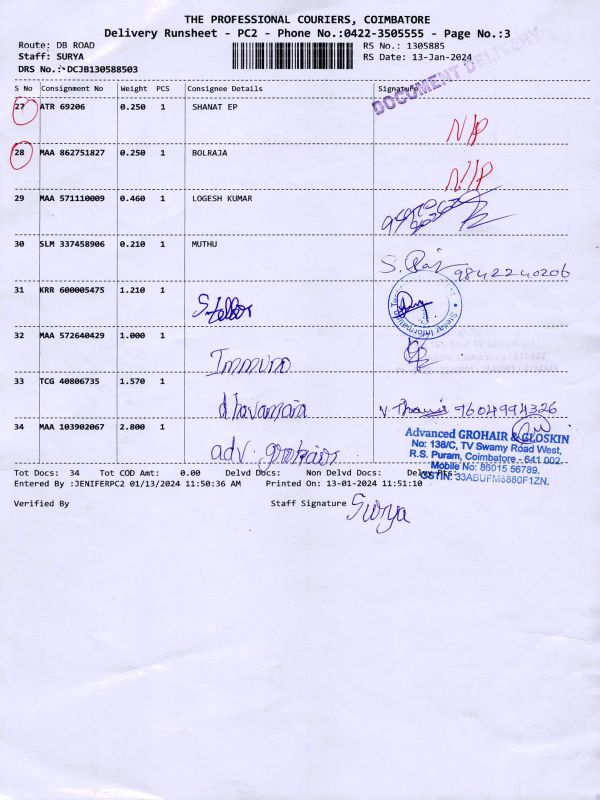 THE PROFESSIONAL COURIERS, COIMBATORE
Delivery Runsheet - PC2 - Phone No.:0422-3505555 - Page No.:3
Route: DB ROAD RS No.: 1305885
Staff: SURYA RS Date: 13-Jan-2024
DRS No.: DCJB130588503
DOCUMENT DELIVERY
S No Consignment No Weight PCS Consignee Details Signature
27 ATR 69206 0.250 1 SHANAT EP
N/P
28 MAA 862751827 0.250 1 BOLRAJA
N/P
29 MAA 571110009 0.460 1 LOGESH KUMAR
30 SLM 337458906 0.210 1 MUTHU
9842240206
31 KRR 600005475 1.210 1
Stellar
32 MAA 572640429 1.000 1
Immuno
33 TCG 40806735 1.570 1
dhavamani 9604994326
34 MAA 103902067 2.800 1
adv. grohair
Advanced GROHAIR & GLOSKIN
No: 138/C, TV Swamy Road West,
R.S. Puram, Coimbatore - 641 002.
Mobile No: 86015 56789.
GSTIN: 33ABUFM8880F1ZN.
Tot Docs: 34 Tot COD Amt: 0.00 Delvd Docs: Non Delvd Docs:
Entered By :JENIFERPC2 01/13/2024 11:50:36 AM Printed On: 13-01-2024 11:51:10
Verified By Staff Signature Surya